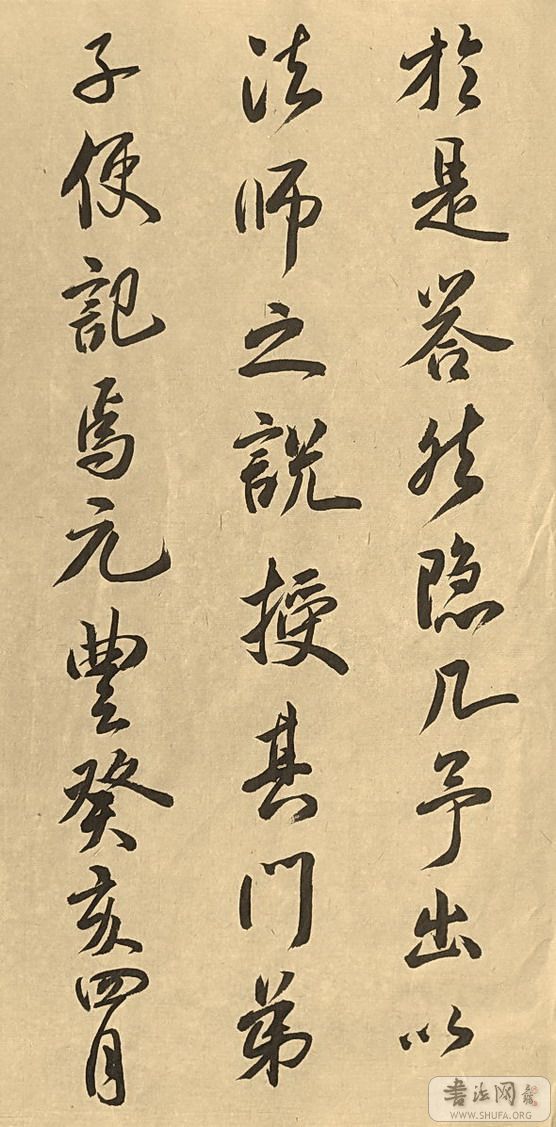 於是荅然隐几予出以
法师之說授其門弟
子使記焉元豐癸亥四月
書法网
WWW.SHUFA.ORG